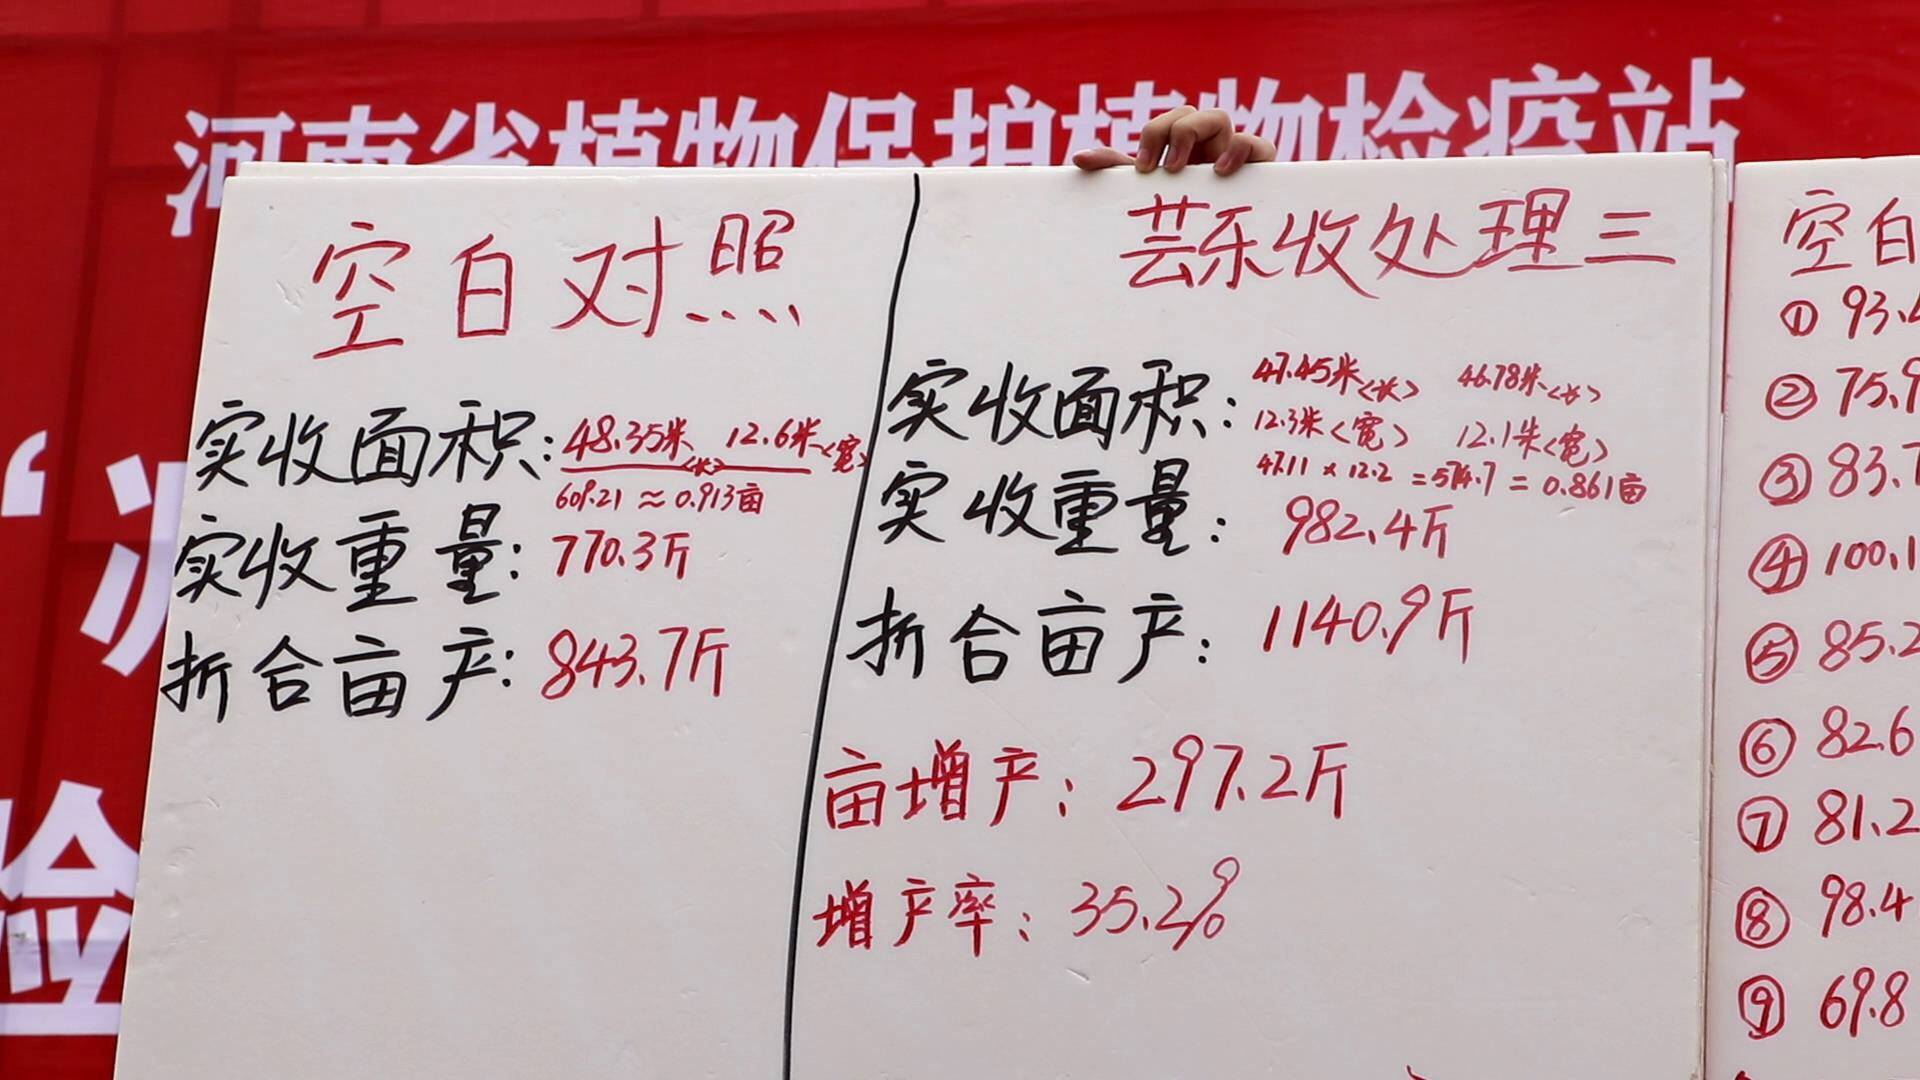 河南省植物保护植物检疫站
空白对照
实收面积: 48.35米<长> 12.6米<宽>
609.21 ≈ 0.913亩
实收重量: 770.3斤
折合亩产: 843.7斤
芸乐收处理三
实收面积: 47.45米<长> 46.78米<长>
12.3米<宽> 12.1米<宽>
47.11 × 12.2 = 574.7 = 0.861亩
实收重量: 982.4斤
折合亩产: 1140.9斤
亩增产: 297.2斤
增产率: 35.2%
空白
① 93.4
② 75.9
③ 83.7
④ 100.1
⑤ 85.2
⑥ 82.6
⑦ 81.2
⑧ 98.4
⑨ 69.8
检